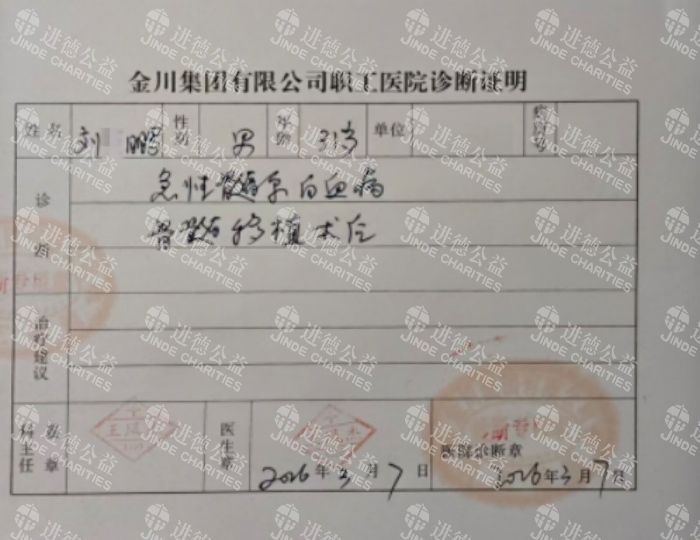 金川集团有限公司职工医院诊断证明
姓名 刘 鹏 性别 男 年龄 31岁 单位
诊断 急性髓系白血病
骨髓移植术后
治疗建议
科主任 签章 医生章 医院诊断章
2026年3月7日 2026年3月7日
进德公益
JINDE CHARITIES